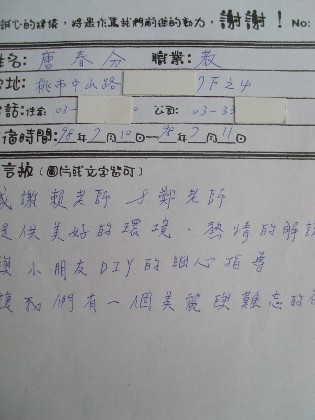 誠心的建議，將是作為我們前進的動力，謝謝！ No:
姓名: 唐春分 職業: 教
地址: 桃市中山路 7F之4
電話: 住宅: 03- 公司: 03-33
宿時間: 98年7月10日~98年7月11日
言板 (圖片或文字皆可)
感謝賴老師&鄭老師
提供美好的環境、熱情的解說
與小朋友DIY的細心指導
讓我們有一個美麗與難忘的